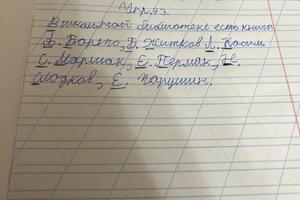 Упр.93.
В школьной библиотеке есть книги
А. Барто, Б. Житков Л. Кассиль
С. Маршак, Е. Пермяк,
Сладков, Е. Чарушин.